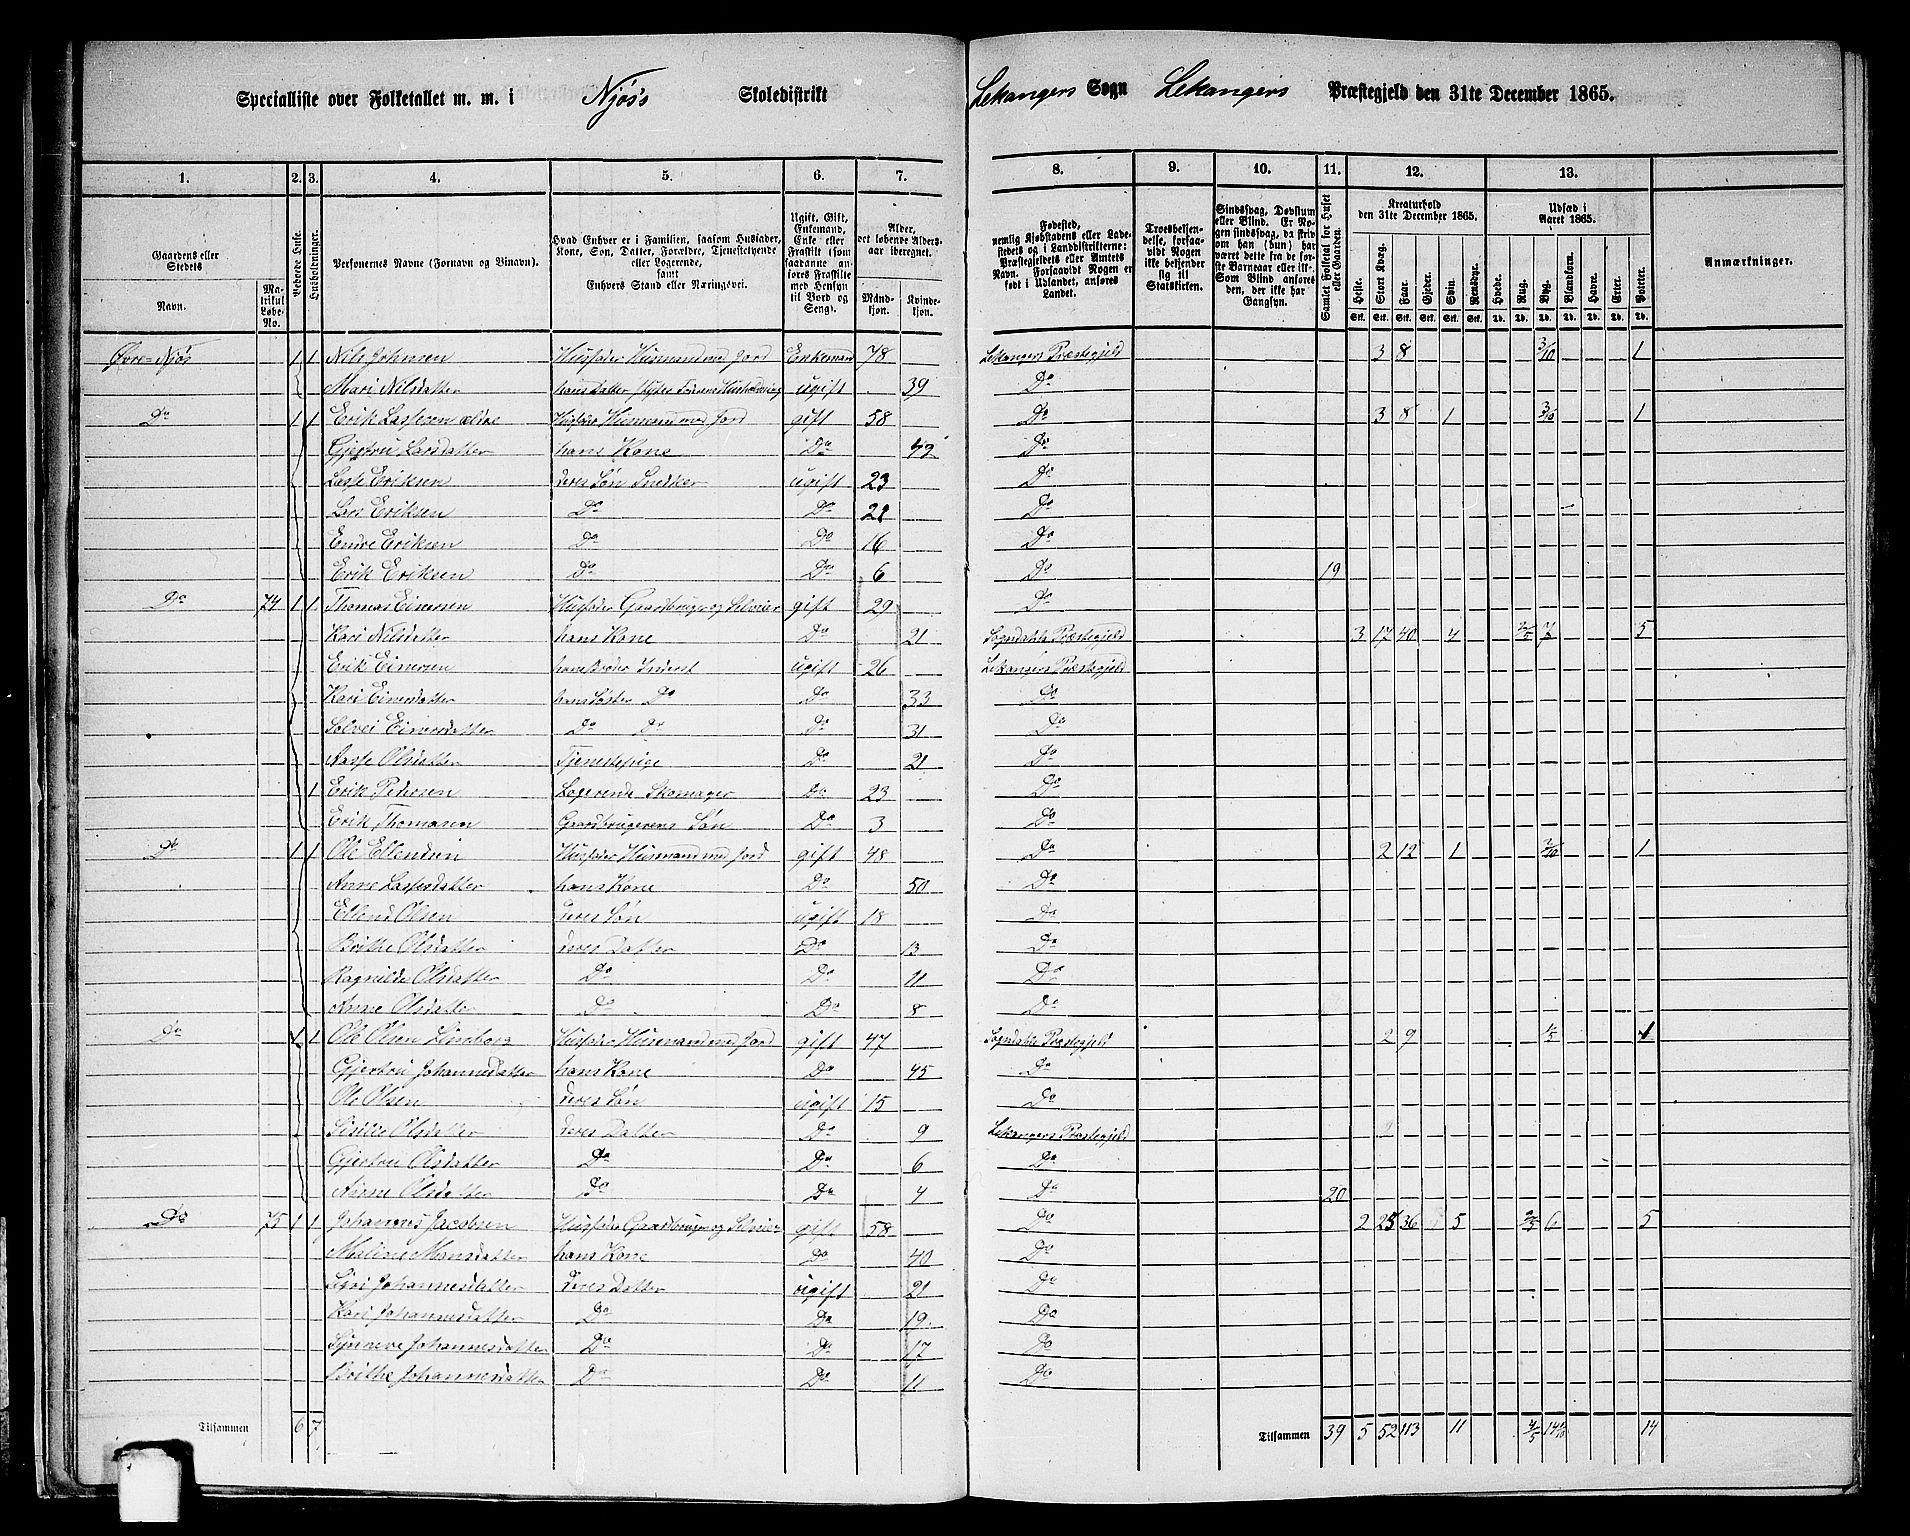 Specialliste over Folketallet m. m. i Njøs's Skoledistrikt Lekangers Sogn Lekangers Præstegjeld den 31te December 1865.
1. 2. 3. 4. 5. 6. 7. 8. 9. 10. 11. 12. 13.
Gaardens eller Stedets
Navn.
Matrikul Løbe-No.
Beboede Huse.
Husholdninger.
Personernes Navne (Fornavn og Tilnavn).
Hvad Enhver er i Familien, saasom Husfader, Kone, Søn, Datter, Forældre, Tjenestetyende eller Logerende, samt Enhvers Stand eller Næringsvei.
Ugift, Gift, Enkemand, Enke eller Fraskilt (som saadanne anføres Fraskilte med Hensyn til Bord og Seng).
Alder, det løbende Aldersaar iberegnet.
Mandkjøn. Kvindekjøn.
Fødested, nemlig Kjøbstadens eller Ladestedets og i Landdistrikterne: Præstegjeldets eller Amtets Navn. Forsaavidt Nogen er født i Udlandet, anføres Landet.
Troesbekjendelse, forsaavidt Nogen ikke bekjender sig til Statskirken.
Sindssvag, Døvstum eller Blind. Er Nogen sindssvag, da skriv om han (hun) har været dette fra de første Barneaar eller ik. Som Blind anføres den, der ikke har Gangsyn.
Samlet Folketal for Huset eller Gaarden.
Kreaturhold den 31te December 1865.
Heste. Stort Kvæg. Faar. Gjeder. Svin. Rensdyr.
Udsæd i Aaret 1865.
Hvede. Rug. Byg. Blandkorn. Havre. Erter. Poteter.
Anmærkninger.
Øvre=Njøs 1 1 Nils Johnsen Husfader Husmand med Jord Enkemand 78 Lekangers Præstegjeld 3 8 3/10 1
Mari Nilsdatter hans Datter ugift 39 Do
Do 1 1 Erik Lassesen ældre Husfader Husmand med Jord gift 58 Do 3 8 1 3/10 1
Gjertru Larsdatter hans Kone Do 42 Do
Lasse Eriksen deres Søn Snedker ugift 23 Do
Lars Eriksen Do Do 21 Do
Endre Eriksen Do Do 16 Do
Erik Eriksen Do Do 6 Do 19
Do 74 1 1 Thomas Einersen Husfader Gaardbruger og Selveier gift 29 Do
Kari Nilsdatter hans Kone Do 21 Sogndahls Præstegjeld 3 17 40 4 2/5 7 5
Erik Einersen hans Broder Inderst ugift 26 Lekangers Præstegjeld
Kari Einersdatter hans Søster Do Do 33 Do
Solvei Einersdatter Do Do Do 31 Do
Aasse Olsdatter Tjenestepige Do 21 Do
1 Erik Pedersen Logerende Skomager Do 23 Do
Erik Thomasen Gaardbrugerens Søn Do 3 Do
Do 1 1 Ole Ellendsen Husfader Husmand med Jord gift 48 Do 2 12 1 2/10 1
Anne Lassesdatter hans Kone Do 50 Do
Ellend Olsen deres Søn ugift 18 Do
Brithe Olsdatter deres Datter Do 13 Do
Ragnilda Olsdatter Do Do 11 Do
Anne Olsdatter Do Do 8 Do
Do 1 1 Ole Olsen Husfader Husmand med Jord gift 47 Sogndahls Præstegjeld 2 9 1/5 1
Gjertru Johannesdatter hans Kone Do 45 Do
Ole Olsen deres Søn ugift 15 Do
Sisilie Olsdatter deres Datter Do 9 Lekangers Præstegjeld
Gjertru Olsdatter Do Do 6 Do
Anne Olsdatter Do Do 4 Do 20
Do 75 1 1 Johannes Jacobsen Husfader Gaardbruger og Selveier gift 58 Do 2 25 36 5 2/5 6 5
Malene Monsdatter hans Kone Do 40 Do
Sigri Johannesdatter deres Datter ugift 21 Do
Kari Johannesdatter Do Do 19 Do
Synneve Johannesdatter Do Do 17 Do
Brithe Johannesdatter Do Do 11 Do
Tilsammen 6 7 Tilsammen 39 5 52 113 11 4/5 14 14